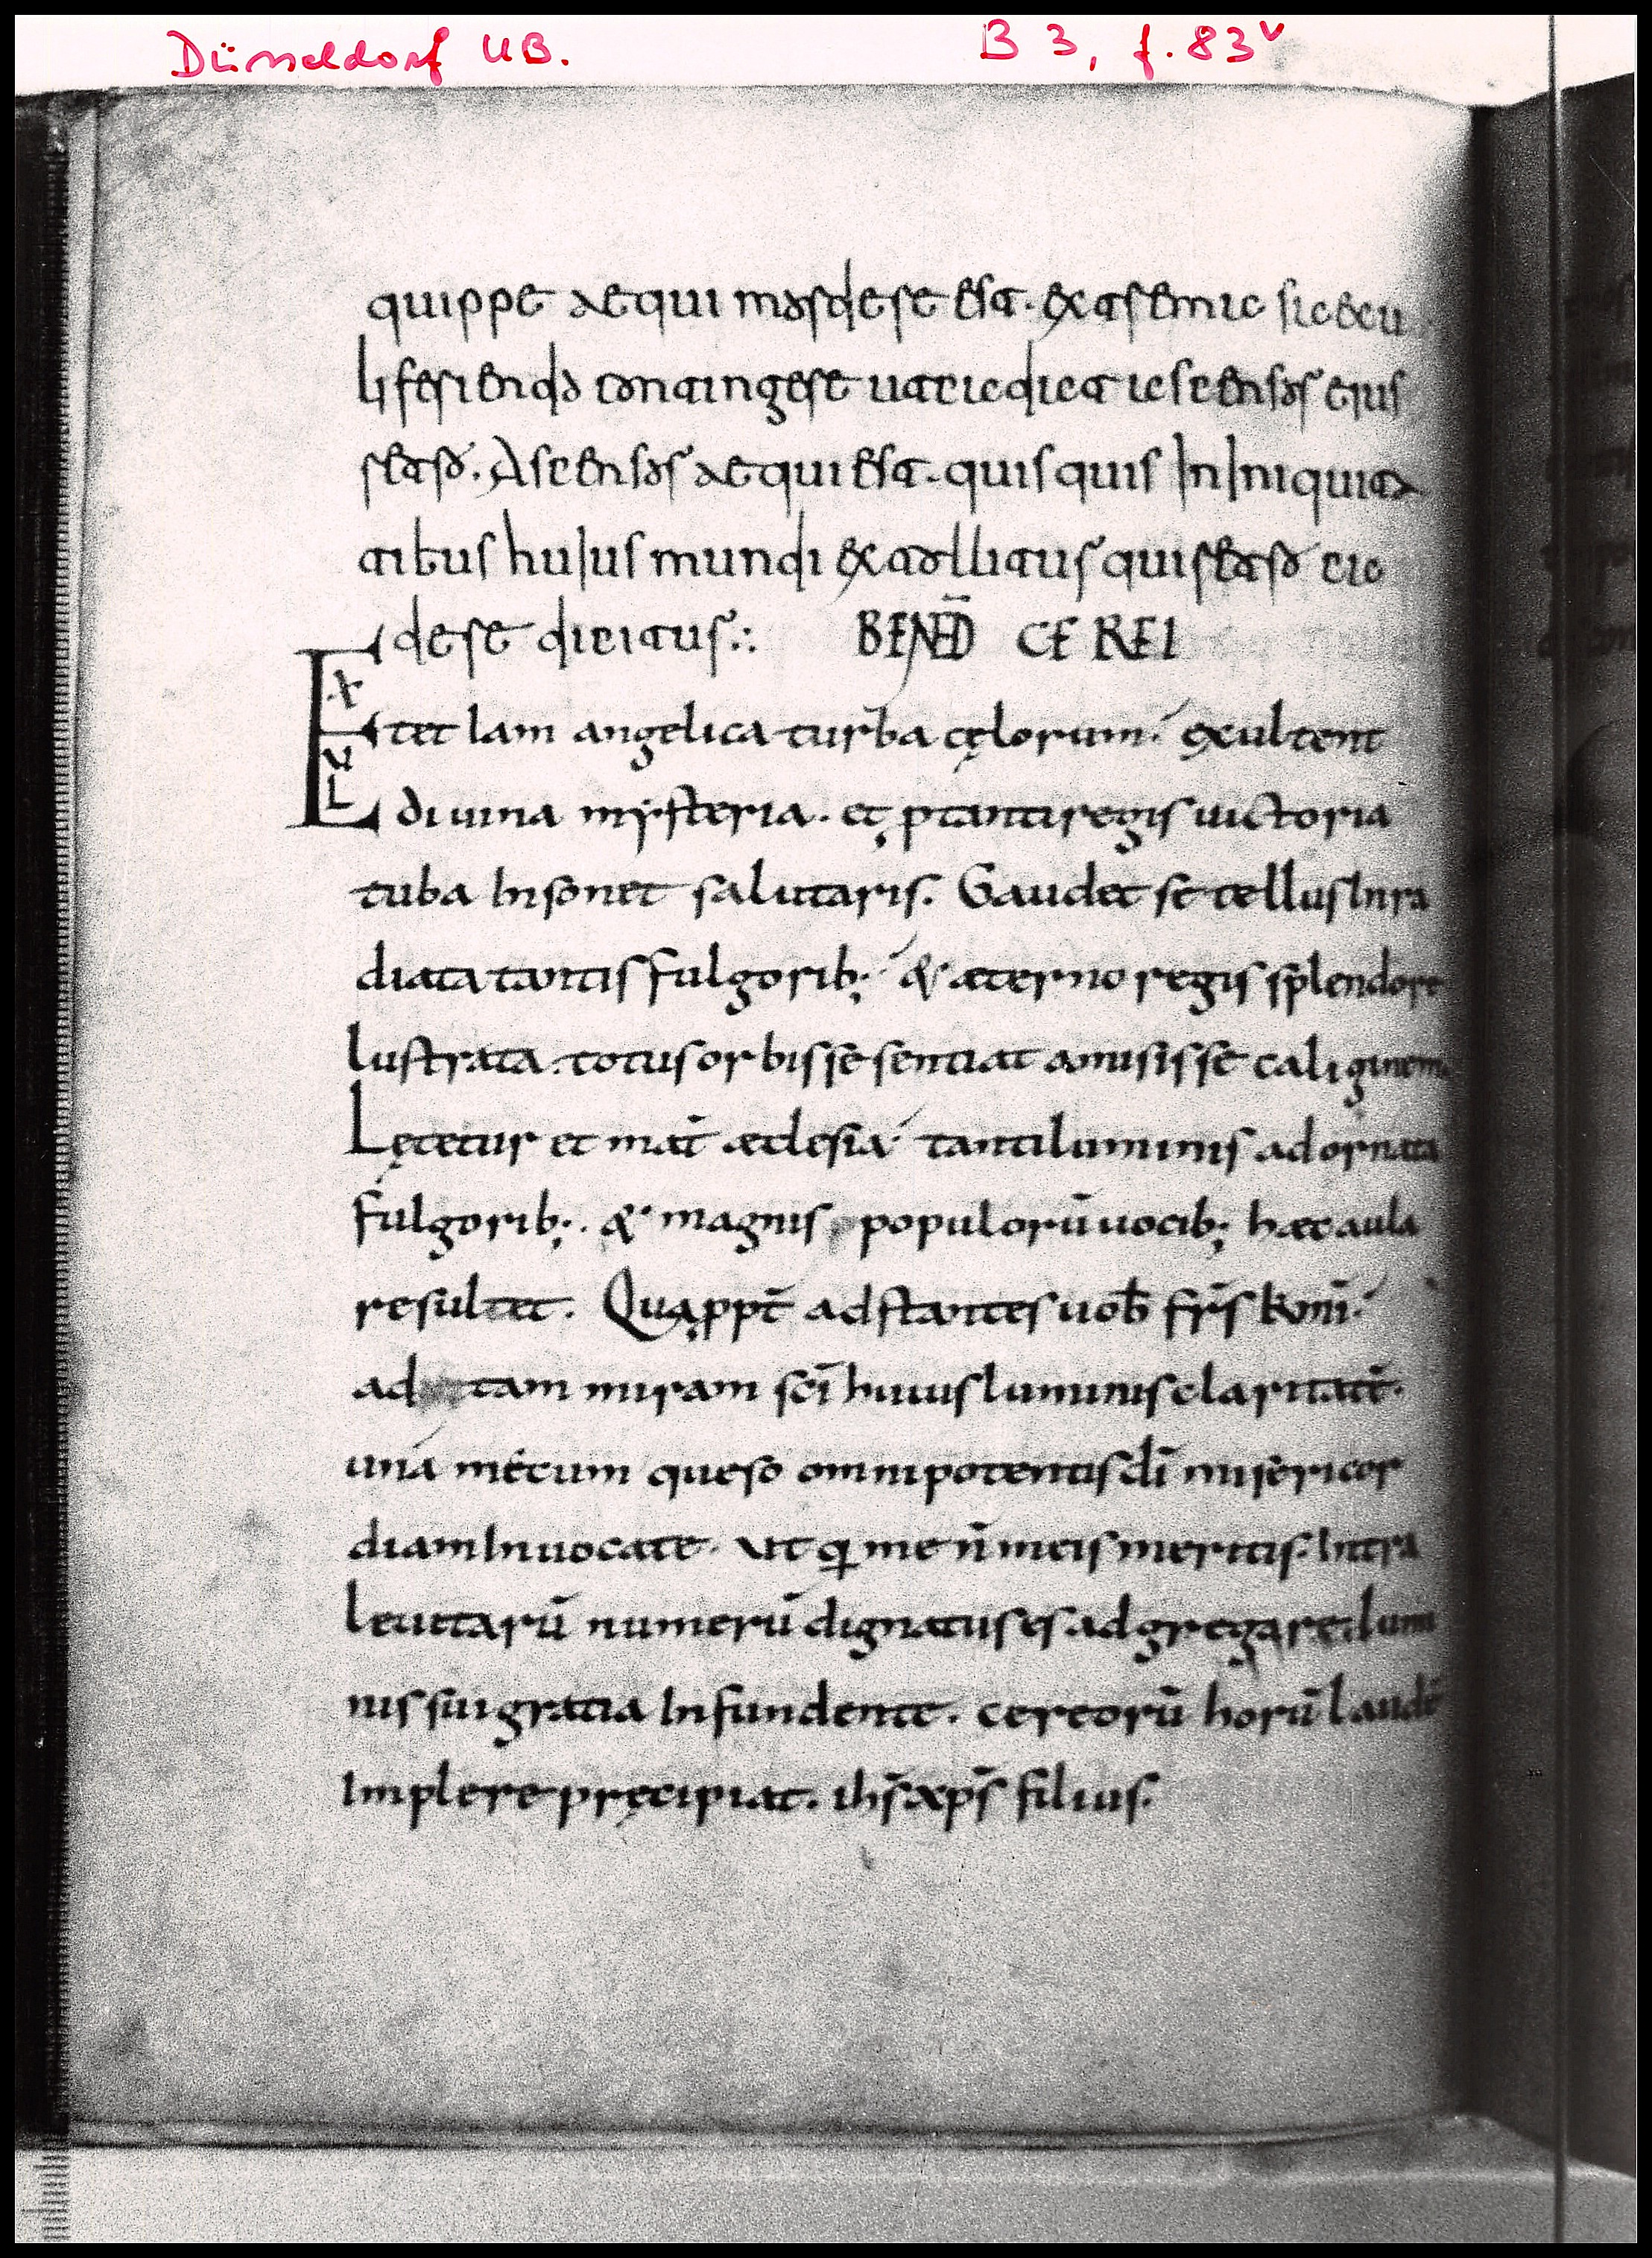 Düsseldorf UB. B 3, f. 83v
quippe aequi mordere est. extrema secu
li feriendo contingere ut cadat ascensor ejus
retro. Ascensor aequi est. quisquis In Iniquita
tibus hujus mundi extollitur qui retro ca
dere dicitur:. BENED̄ CEREI
EXVL tet Iam angelica turba cęlorum. exultent
diuina mysteria. et p tanti regis uictoria
tuba Insonet salutaris. Gaudet se tellus Inra
diata tantis fulgorib; & aeterno regis splendore
lustrata. totus orbis se sentiat amisisse caliginem
Lętetur et mat̄ aeclesia tanti luminis adornata
fulgorib;. & magnis populorū uocib; haec aula
resultet. Quapropt̄ adstantes uob̄ fr̄s kr̄mi.
ad tam miram sc̄i huius luminis claritatē.
una mecum queso omnipotentis dī misericor
diam Inuocate. ut qui me n̄ meis meritis. Intra
leuitarū numerū dignatus es adgregare. lumi
nis sui gratia Infundente. cereorū horū laudē
Implere pręcipiat. ih̄s xp̄s filius.